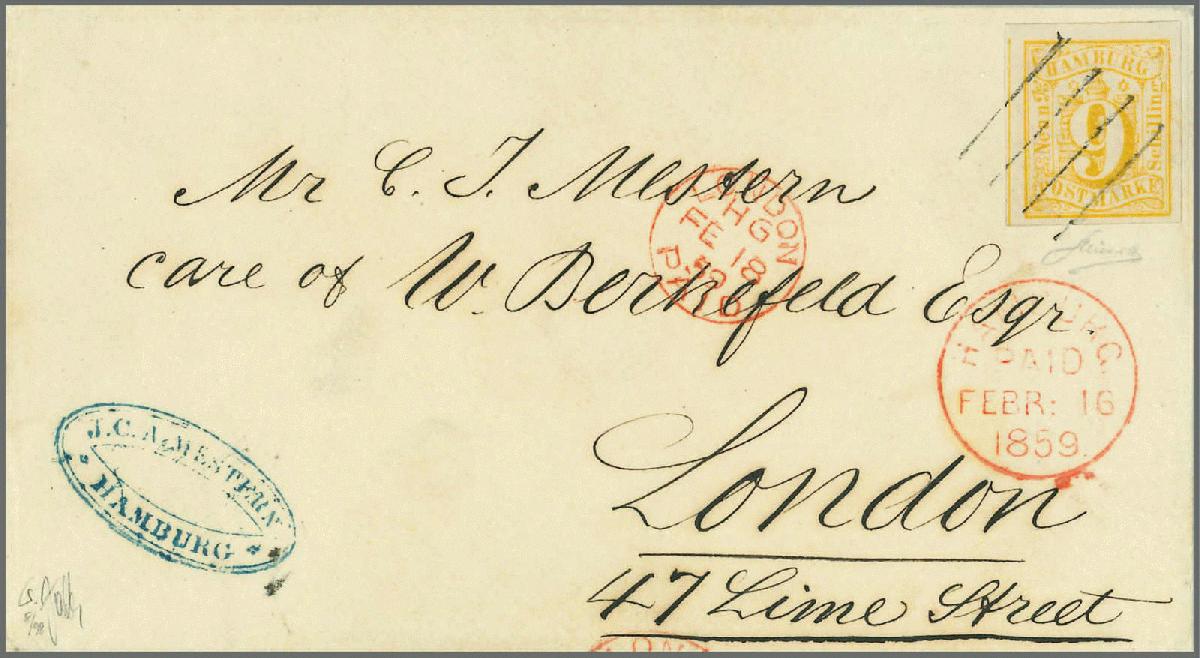 HAMBURG
Neun
9
Schilling
POSTMARKE
Mr C. J. Mestern
care of W. Berkefeld Esqr.
LONDON
HG
FE 18
59
PAID
HAMBURG
PAID
FEBR: 16
1859.
London
47 Lime Street
J. C. A. MESTERN
HAMBURG
LON